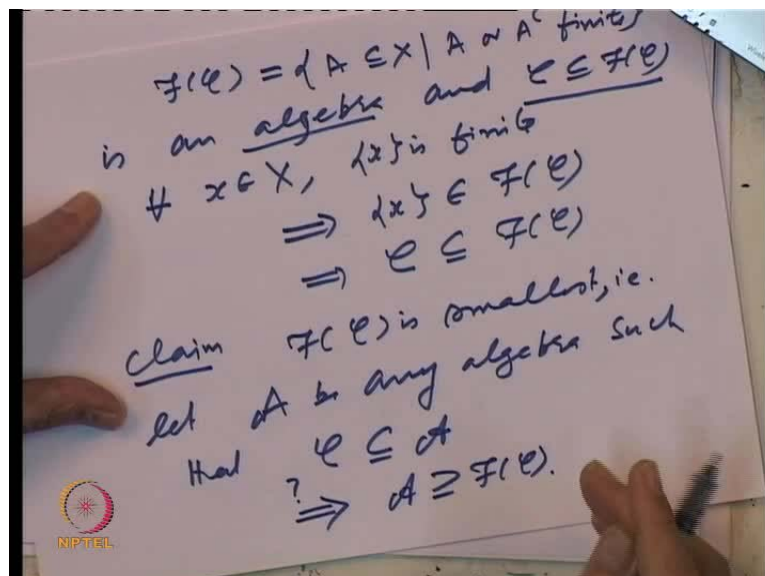 𝓕(𝓒) = {A ⊆ X | A or Aᶜ finite}
is an algebra and 𝓒 ⊆ 𝓕(𝓒)
∀ x ∈ X, {x} is finite
⟹ {x} ∈ 𝓕(𝓒)
⟹ 𝓒 ⊆ 𝓕(𝓒)
Claim 𝓕(𝓒) is smallest, i.e.
let 𝓐 be any algebra such
that 𝓒 ⊆ 𝓐
? ⟹ 𝓐 ⊇ 𝓕(𝓒).
NPTEL